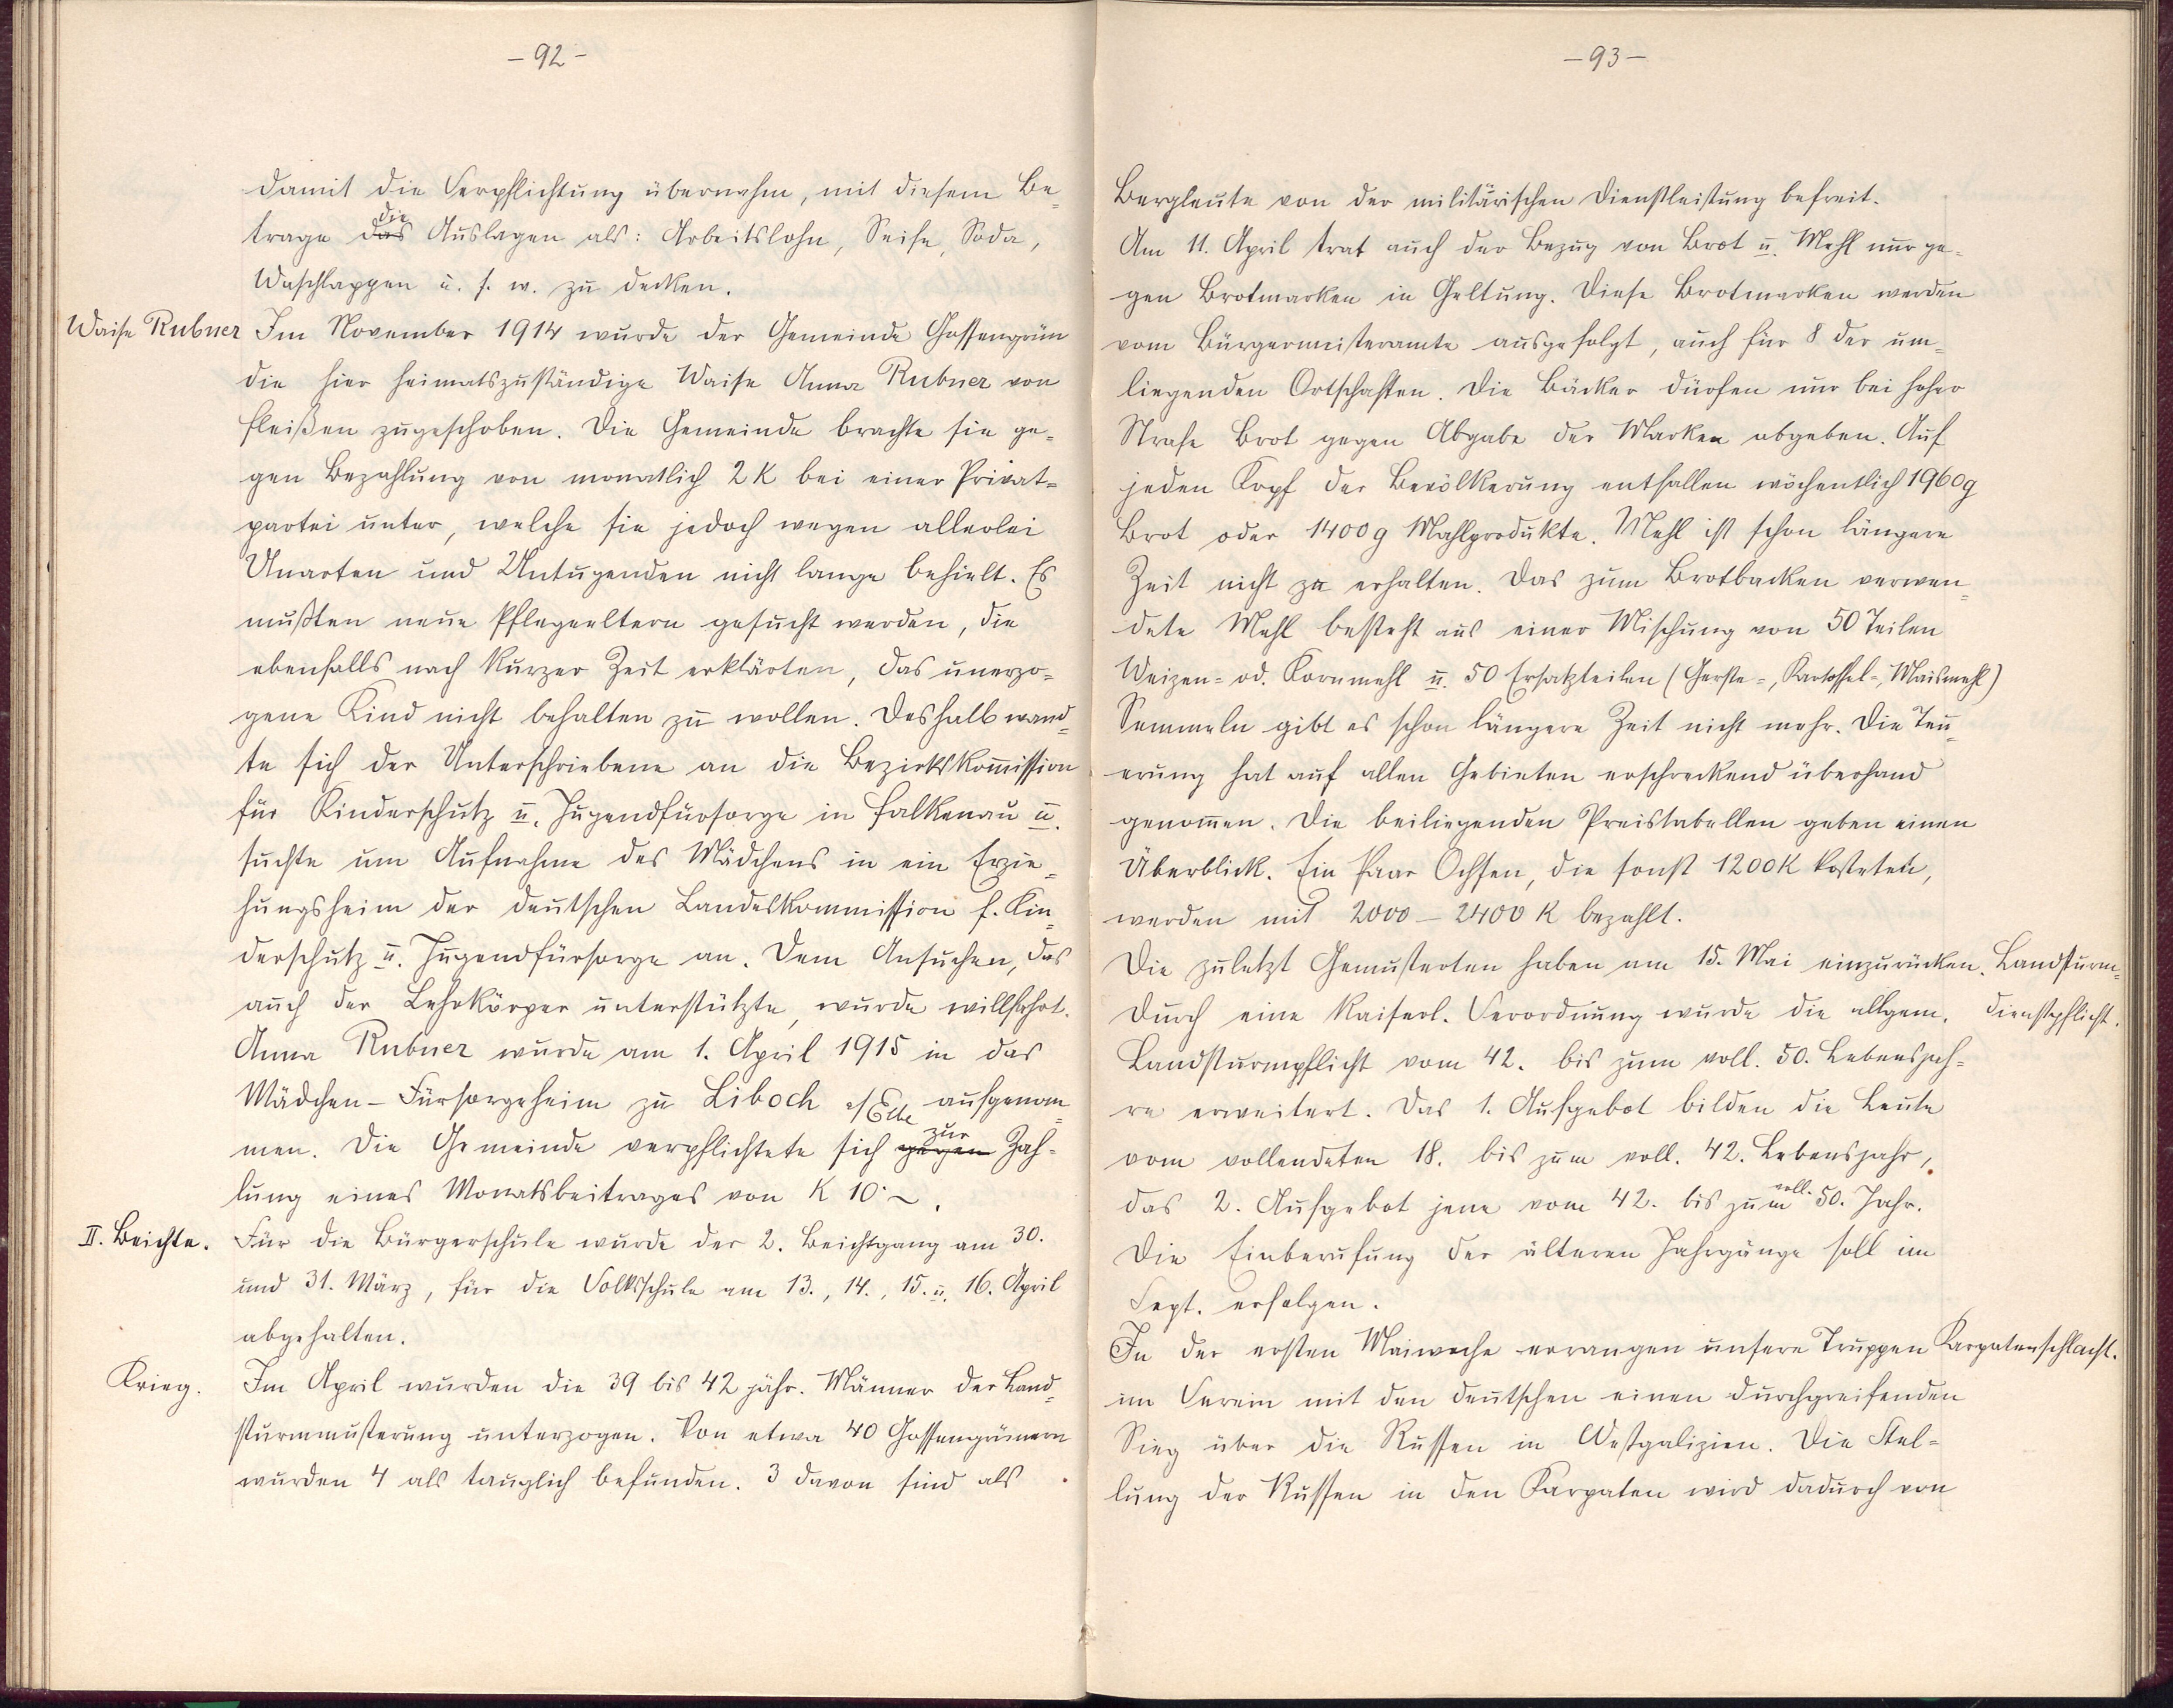 - 92 -
damit die Verpflichtung übernahm, mit diesem Be=
die
trage das Auslagen als: Arbeitslohn, Seife, Soda,
Waschlappen u. s. w. zu decken.
Waise Rubner Im November 1914 wurde der Gemeinde Gossengrün
die hier heimatszuständige Waise Anna Rubner von
Fleißen zugeschoben. Die Gemeinde brachte sie ge=
gen Bezahlung von monatlich 2 K bei einer Privat=
partei unter, welche sie jedoch wegen allerlei
Unarten und Untugenden nicht lange behielt. Es
mußten neue Pflegeeltern gesucht werden, die
ebenfalls nach kurzer Zeit erklärten, das unerzo=
gene Kind nicht behalten zu wollen. Deshalb wand=
te sich der Unterschriebene an die Bezirkskom̅ission
für Kinderschutz u. Jugendfürsorge in Falkenau u.
suchte um Aufnahme des Mädchens in ein Erzie=
hungsheim der deutschen Landeskommission f. Kin=
derschutz u. Jugendfürsorge an. Dem Ansuchen, das
auch der Lehrkörper unterstützte, wurde willfahrt.
Anna Rubner wurde am 1. April 1915 in das
Mädchen-Fürsorgeheim zu Liboch a/Elbe aufgenom=
zur
men. Die Gemeinde verpflichtete sich gegen Zah=
lung eines Monatsbeitrages von K 10·~.
II. Beichte. Für die Bürgerschule wurde der 2. Beichtgang am 30.
und 31. März, für die Volksschule am 13., 14., 15. u. 16. April
abgehalten.
Krieg. Im April wurden die 39 bis 42 jähr. Männer der Land=
sturmmusterung unterzogen. Von etwa 40 Gossengrünern
wurden 4 als tauglich befunden. 3 davon sind als
- 93 -
Bergleute von der militärischen Dienstleistung befreit.
Am 11. April trat auch der Bezug von Brot u. Mehl nur ge=
gen Brotmarken in Geltung. Diese Brotmarken werden
vom Bürgermeisteramte ausgefolgt, auch für 8 der um=
liegenden Ortschaften. Die Bäcker dürfen nur bei hoher
Strafe Brot gegen Abgabe der Marken abgeben. Auf
jeden Kopf der Bevölkerung entfallen wöchentlich 1960 g
Brot oder 1400 g Mahlprodukte. Mehl ist schon längere
Zeit nicht zu erhalten. Das zum Brotbacken verwen=
dete Mehl besteht aus einer Mischung von 50 Teilen
Weizen= od. Kornmehl u. 50 Ersatzteilen (Gerste=, Kartoffel=, Maismehl)
Semmeln gibt es schon längere Zeit nicht mehr. Die Teu=
erung hat auf allen Gebieten erschreckend überhand
genom̅en. Die beiliegenden Preistabellen geben einen
Überblick. Ein Paar Ochsen, die sonst 1200 K kosteten,
werden mit 2000 - 2400 K bezahlt.
Die zuletzt Gemusterten haben am 15. Mai einzurücken. Landsturm=
Durch eine Kaiserl. Verordnung wurde die allgem. dienstpflicht.
Landsturmpflicht vom 42. bis zum voll. 50. Lebensjah=
re erweitert. Das 1. Aufgebot bilden die Leute
vom vollendeten 18. bis zum voll. 42. Lebensjahr,
voll.
das 2. Aufgebot jene vom 42. bis zum 50. Jahr.
Die Einberufung der älteren Jahrgänge soll im
Sept. erfolgen.
In der ersten Maiwoche errangen unsere Truppen Karpatenschlacht.
im Verein mit den Deutschen einen durchgreifenden
Sieg über die Russen in Westgalizien. Die Stel=
lung der Russen in den Karpaten wird dadurch von